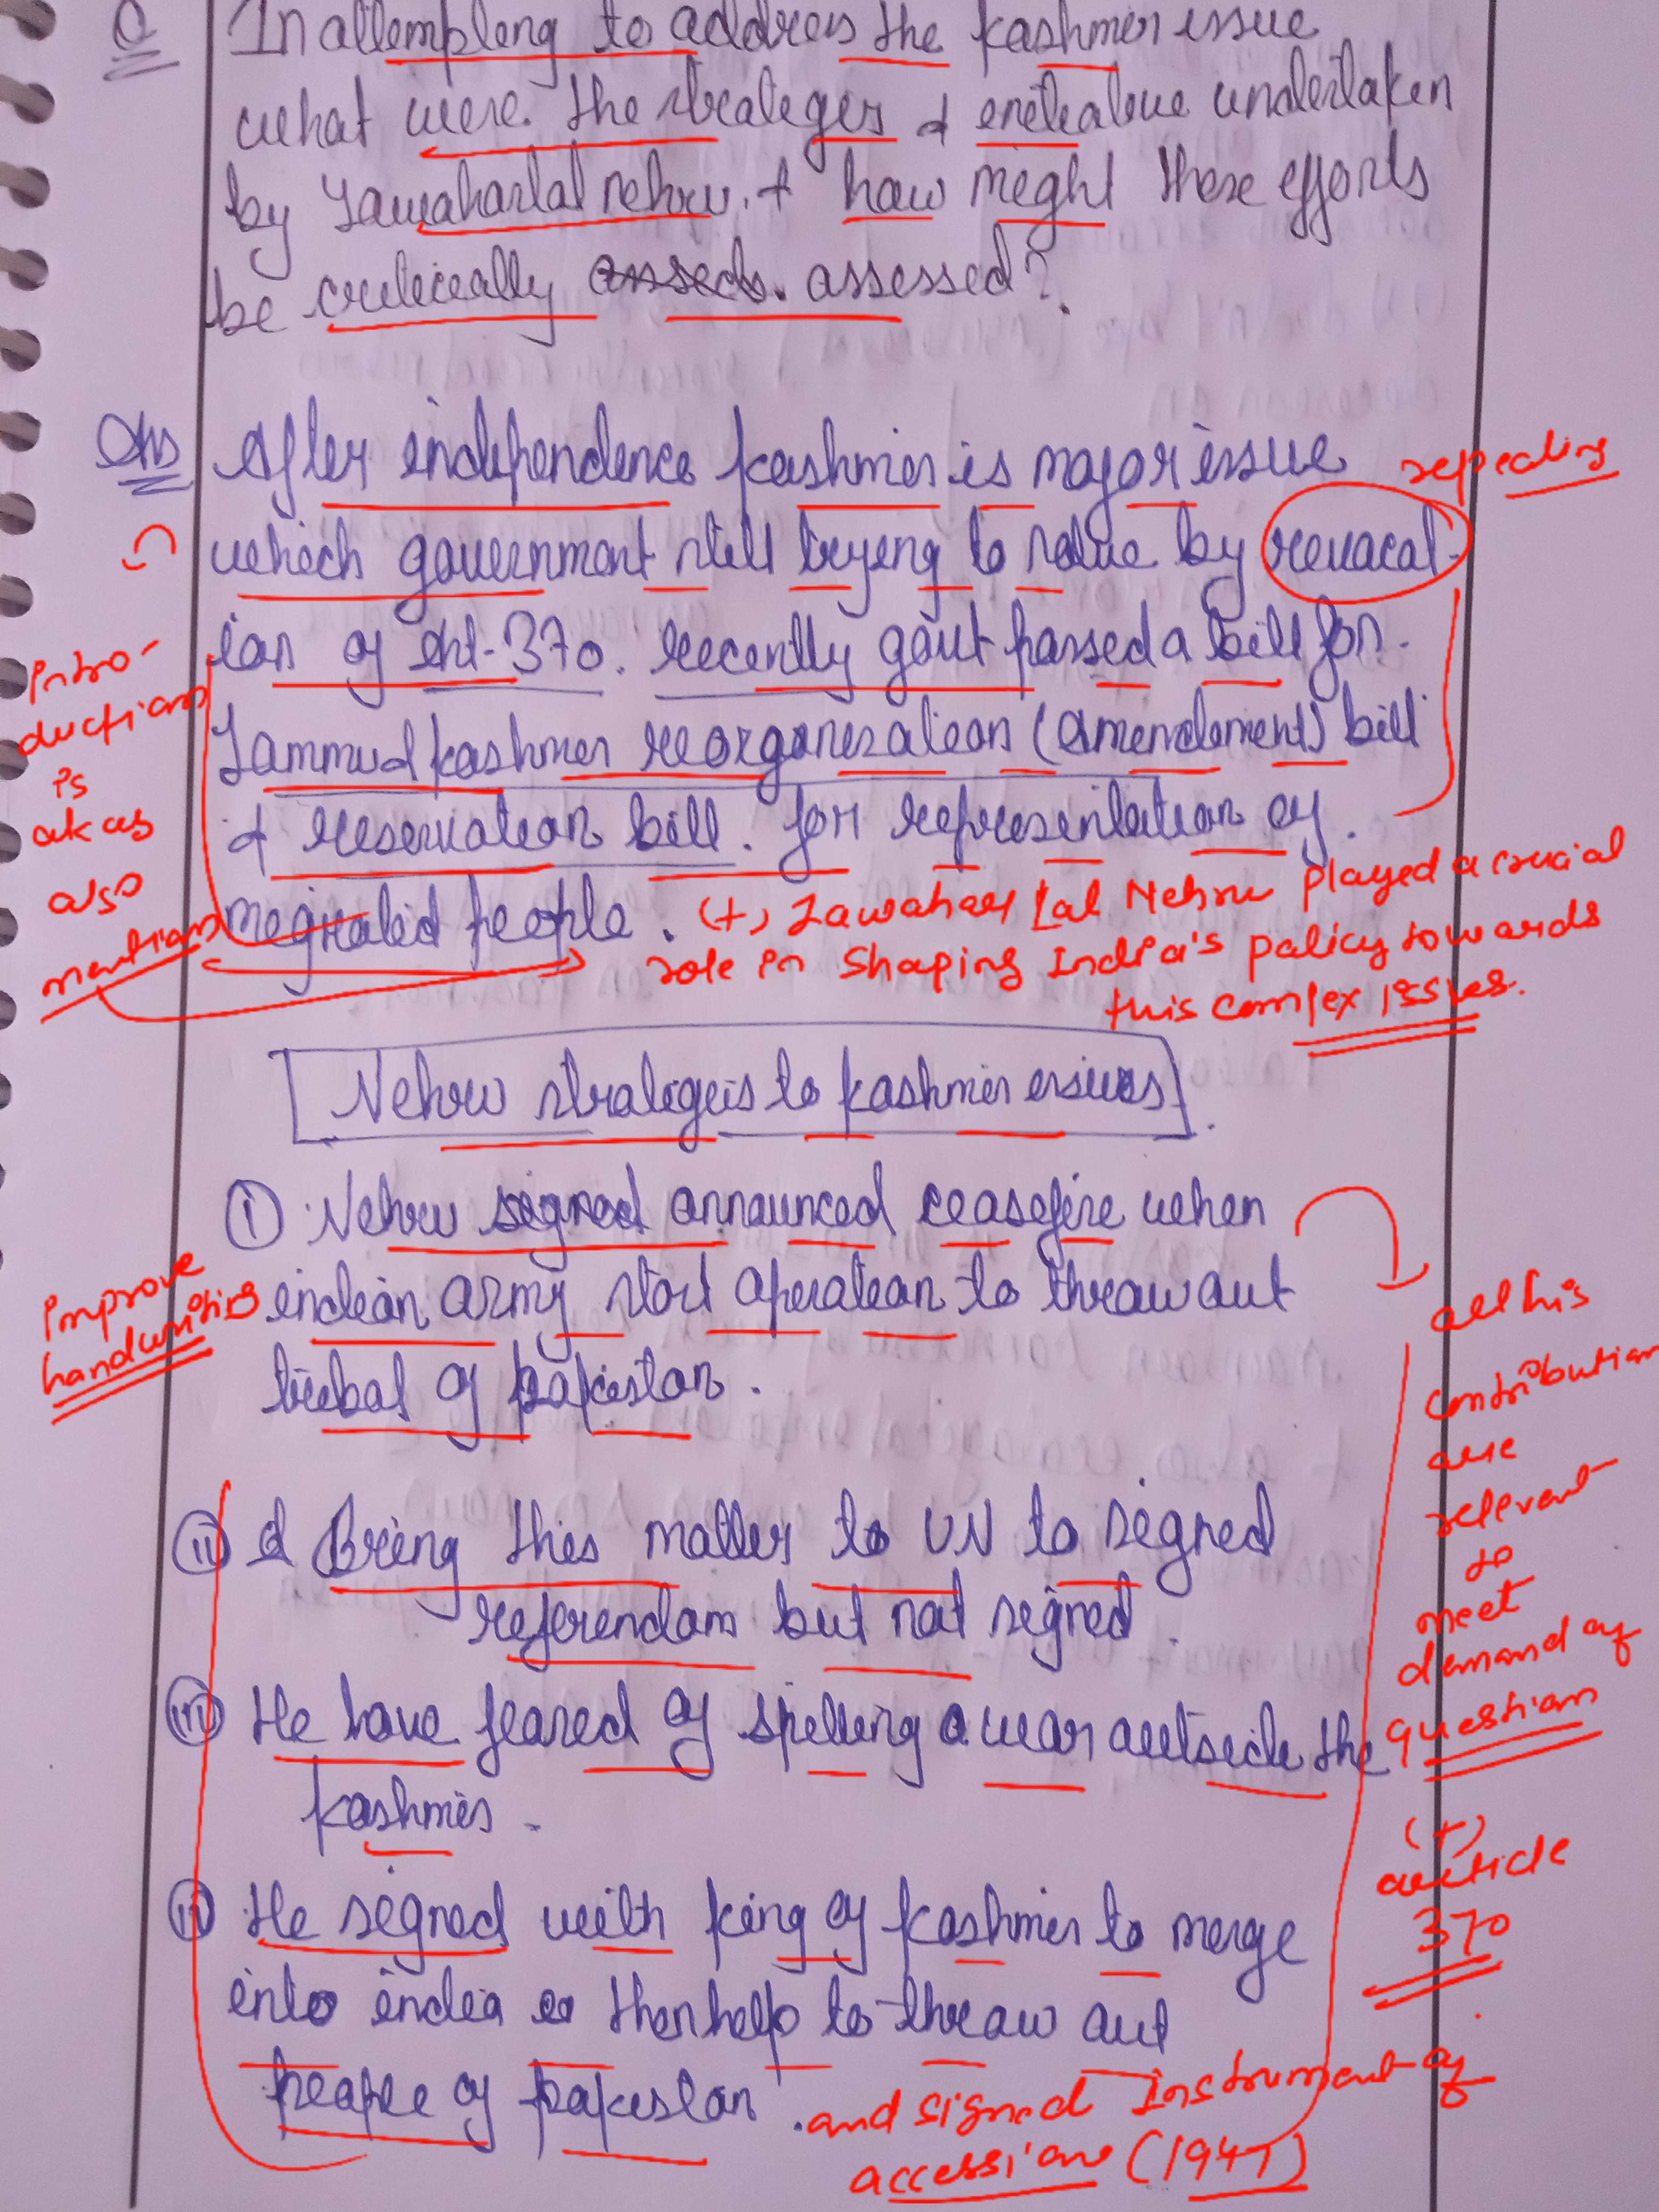 Q In attempting to address the Kashmir issue
what were the strateges & initiative undertaken
by Jawaharlal nehru. & how might these efforts
be criticially assessed?.
Ans After independence Kashmir is major issue
repealing
which government still trying to solve by revocat-
ion of Art-370. recently govt passed a bill for
Jammu & Kashmir reorganization (amendement) bill
& reservation bill. for representation of
migrated people.
Intro-
ductions
is
ok as
also
mention
(+) Jawahar Lal Nehru played a crucial
role in shaping India's policy towards
this complex issues.
Nehru strategeis to Kashmir issues.
(i) Nehru signed announced ceasefire when
indian army start operation to throw out
tribal of pakistan.
Improve
handwriting
(ii) & Bring this matter to UN to signed
referendam but not signed.
(iii) He have feared of spelling a war outside the
Kashmir.
(iv) He signed with king of Kashmir to merge
into india then help to throw out
people of pakistan.
all his
contribution
are
relevent
to
meet
demand of
question
(+)
article
370
and signed Instrument of
accession (1947)